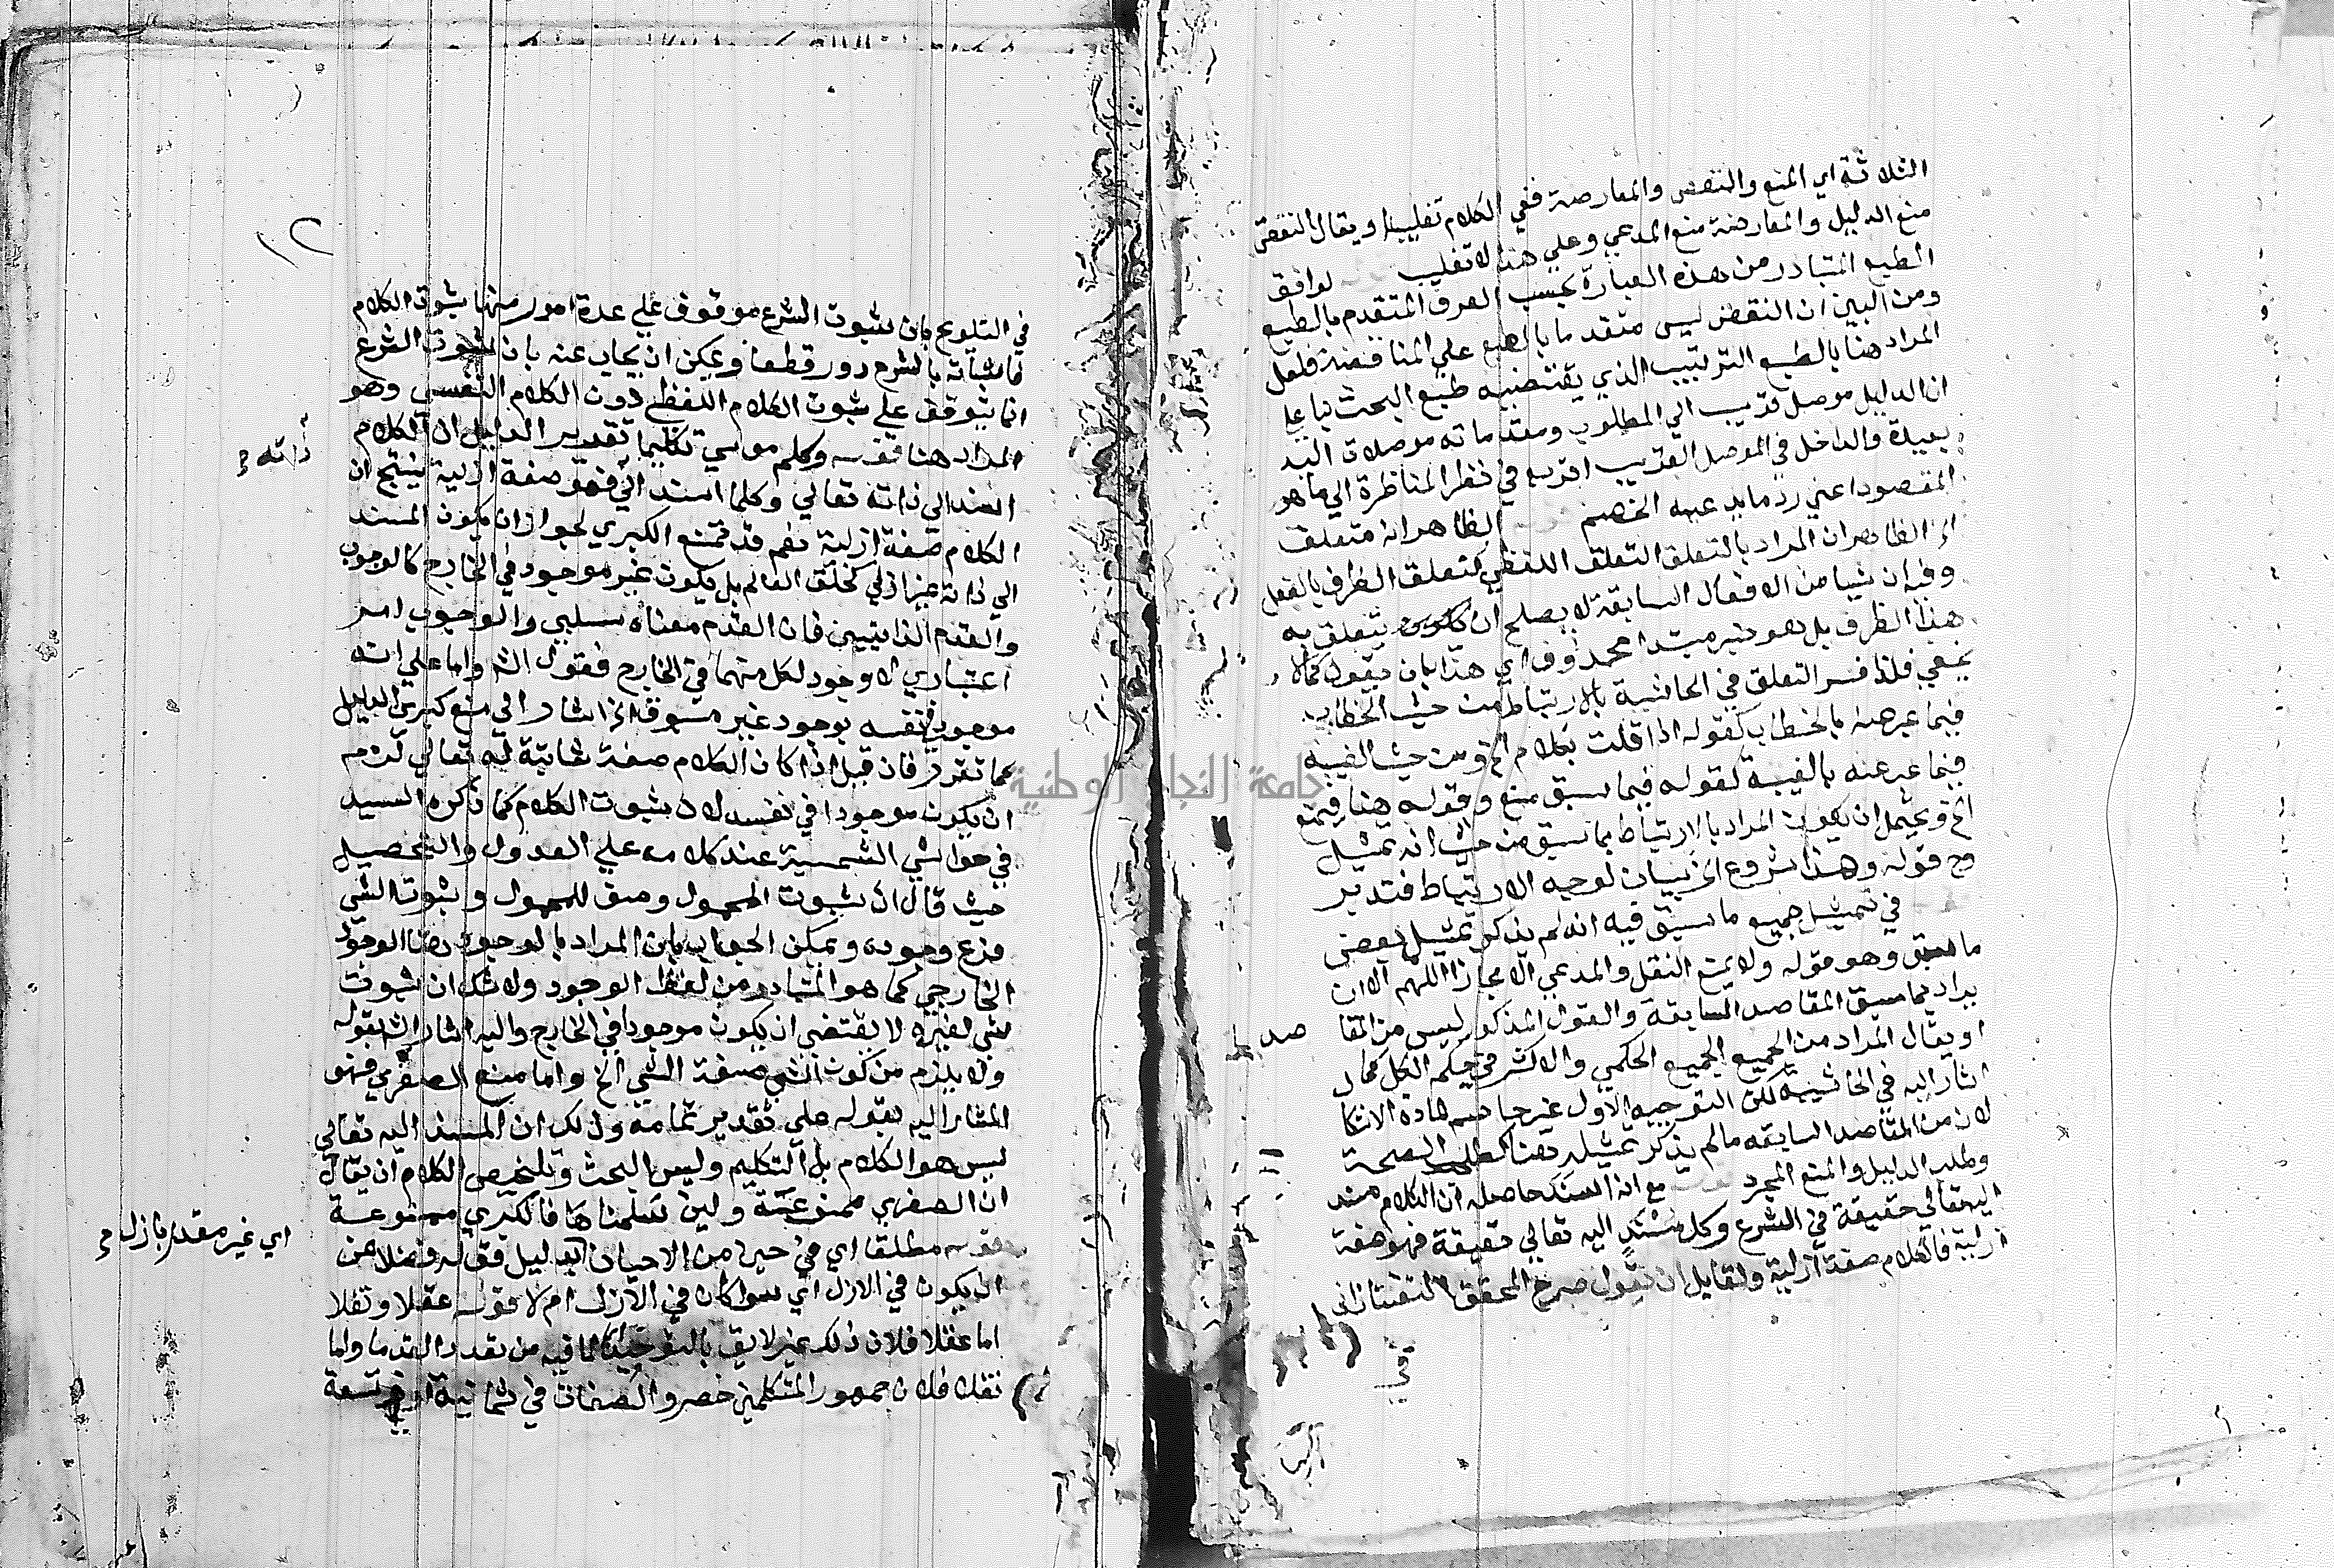 الثلاثة اي المنع والنقض والمعارضة ففي الكلام تغليب او يقال النقض
منع الدليل والمعارضة منع المدعي وعلي هذا لا تغليب لوافق
الطبع المتبادر من هذه العبارة بحسب العرف المتقدم بالطبع
ومن البين ان النقض ليس متقدما بالطبع علي المناقضة فلعل
المراد هنا بالطبع الترتيب الذي يقتضيه طبع البحث بناء علي
ان الدليل موصل قريب الي المطلوب ومقدماته موصلات اليه
بعيدة والداخل في الموصل القريب اقرب في نظر المناظرة الي ما هو
المقصود اعني رد ما يدعيه الخصم الظاهر انه متعلق
الخ الظاهر ان المراد بالتعلق التعلق اللفظي كتعلق الظرف بالفعل
وفيه ان شيا من الافعال السابقة لا يصلح ان يتعلق به
هذا الظرف بل هو خبر مبتدا محذوف اي هذا بان يقول كما لا
يخفي فلذا فسر التعلق في الحاشية بالارتباط من حيث الخطاب
فيما عبر عنه بالخطاب كقوله اذا قلت بكلام الخ ومن حيث الغيبة
فيما عبر عنه بالغيبة كقوله فيما سبق منع وقوله هنا فيمنع
الخ ويحتمل ان يكون المراد بالارتباط بما سبق من حيث انه تمثيل
وح قوله وهذا شروع الخ بيان لوجه الارتباط فتدبر
في تمثيل جميع ما سبق فيه انه لم يذكر تمثيل بعض
ما سبق وهو قوله ولا يمنع النقل والمدعي الا مجازا اللهم الا ان
يراد بما سبق المقاصد السابقة والقول المذكور ليس من المقا صد
او يقال المراد من الجميع الجميع الحكمي والاكثر في حكم الكل كما
اشار اليه في الحاشية لكن التوجيه الاول غير حاسم لمادة الاشكا
لان من المقاصد السابقة ما لم يذكر تمثيله هنا كطلب الصحة
وطلب الدليل والمنع المجرد مع ان السند حاصله ان الكلام مسند
اليه تعالي حقيقة في الشرع وكل مسند اليه تعالي حقيقة فهو صفة
ازلية فالكلام صفة ازلية ولقايل ان يقول صرح المحقق التفتازاني
في
١٢
في التلويح بان ثبوت الشرع موقوف علي عدة امور منها ثبوت الكلام
فاثباته بالشرع دور قطعا ويمكن ان يجاب عنه بان ثبوت الشرع
انما يتوقف علي ثبوت الكلام اللفظي دون الكلام النفسي وهو
المراد هنا قوله وكلم موسي تكليما تقدير الدليل ان الكلام
اسند الي ذاته تعالي وكلما اسند الي فهو صفة ازلية ينتج ان
ذاته
الكلام صفة ازلية نعم قد تمنع الكبري لجواز ان يكون المسند
الي ذاته غير ازلي كخلق العالم بل يكون غير موجود في الخارج كالوجوب
والقدم الذاتيين فان القدم معناه سلبي والوجوب امر
اعتباري لا وجود لكل منهما في الخارج فقول الش واما علي انه
موجود في نفسه بوجود غير مسبوق الخ اشار الي منع كبري الدليل
كما تقرر فان قيل اذا كان الكلام صفة ثابتة له تعالي لزم
ان يكون موجودا في نفسه لان ثبوت الكلام كما ذكره السيد
في حواشي الشمسية عند كلامه علي العدول والتحصيل
حيث قال ان ثبوت المحمول وصف للمحمول وثبوت الشي
فرع وجوده ويمكن الجواب بان المراد بالوجود هنا الوجود
الخارجي كما هو المتبادر من لفظ الوجود ولا شك ان ثبوت
شي لغيره لا يقتضي ان يكون موجودا في الخارج واليه اشار الش بقوله
ولا يلزم من كون الشي صفة الشي الخ واما منع الصغري فهو
المشار اليه بقوله علي تقدير تمامه وذلك ان المسند اليه تعالي
ليس هو الكلام بل التكليم وليس البحث وتلخيص الكلام ان يقال
ان الصغري ممنوعة ولين سلمناها فالكبري ممنوعة
قوله مطلقا اي في حين من الاحيان بدليل قوله فضلا عن
اي غير مقيد بازل
ان يكون في الازل اي سوا كان في الازل ام لا قوله عقلا ونقلا
اما عقلا فلان ذلك غير لايق بالتوحيد لما فيه من تعدد القدما واما
نقلا فلان جمهور المتكلمين حصروا الصفات في ثمانية او تسعة
جامعة النجاح الوطنية